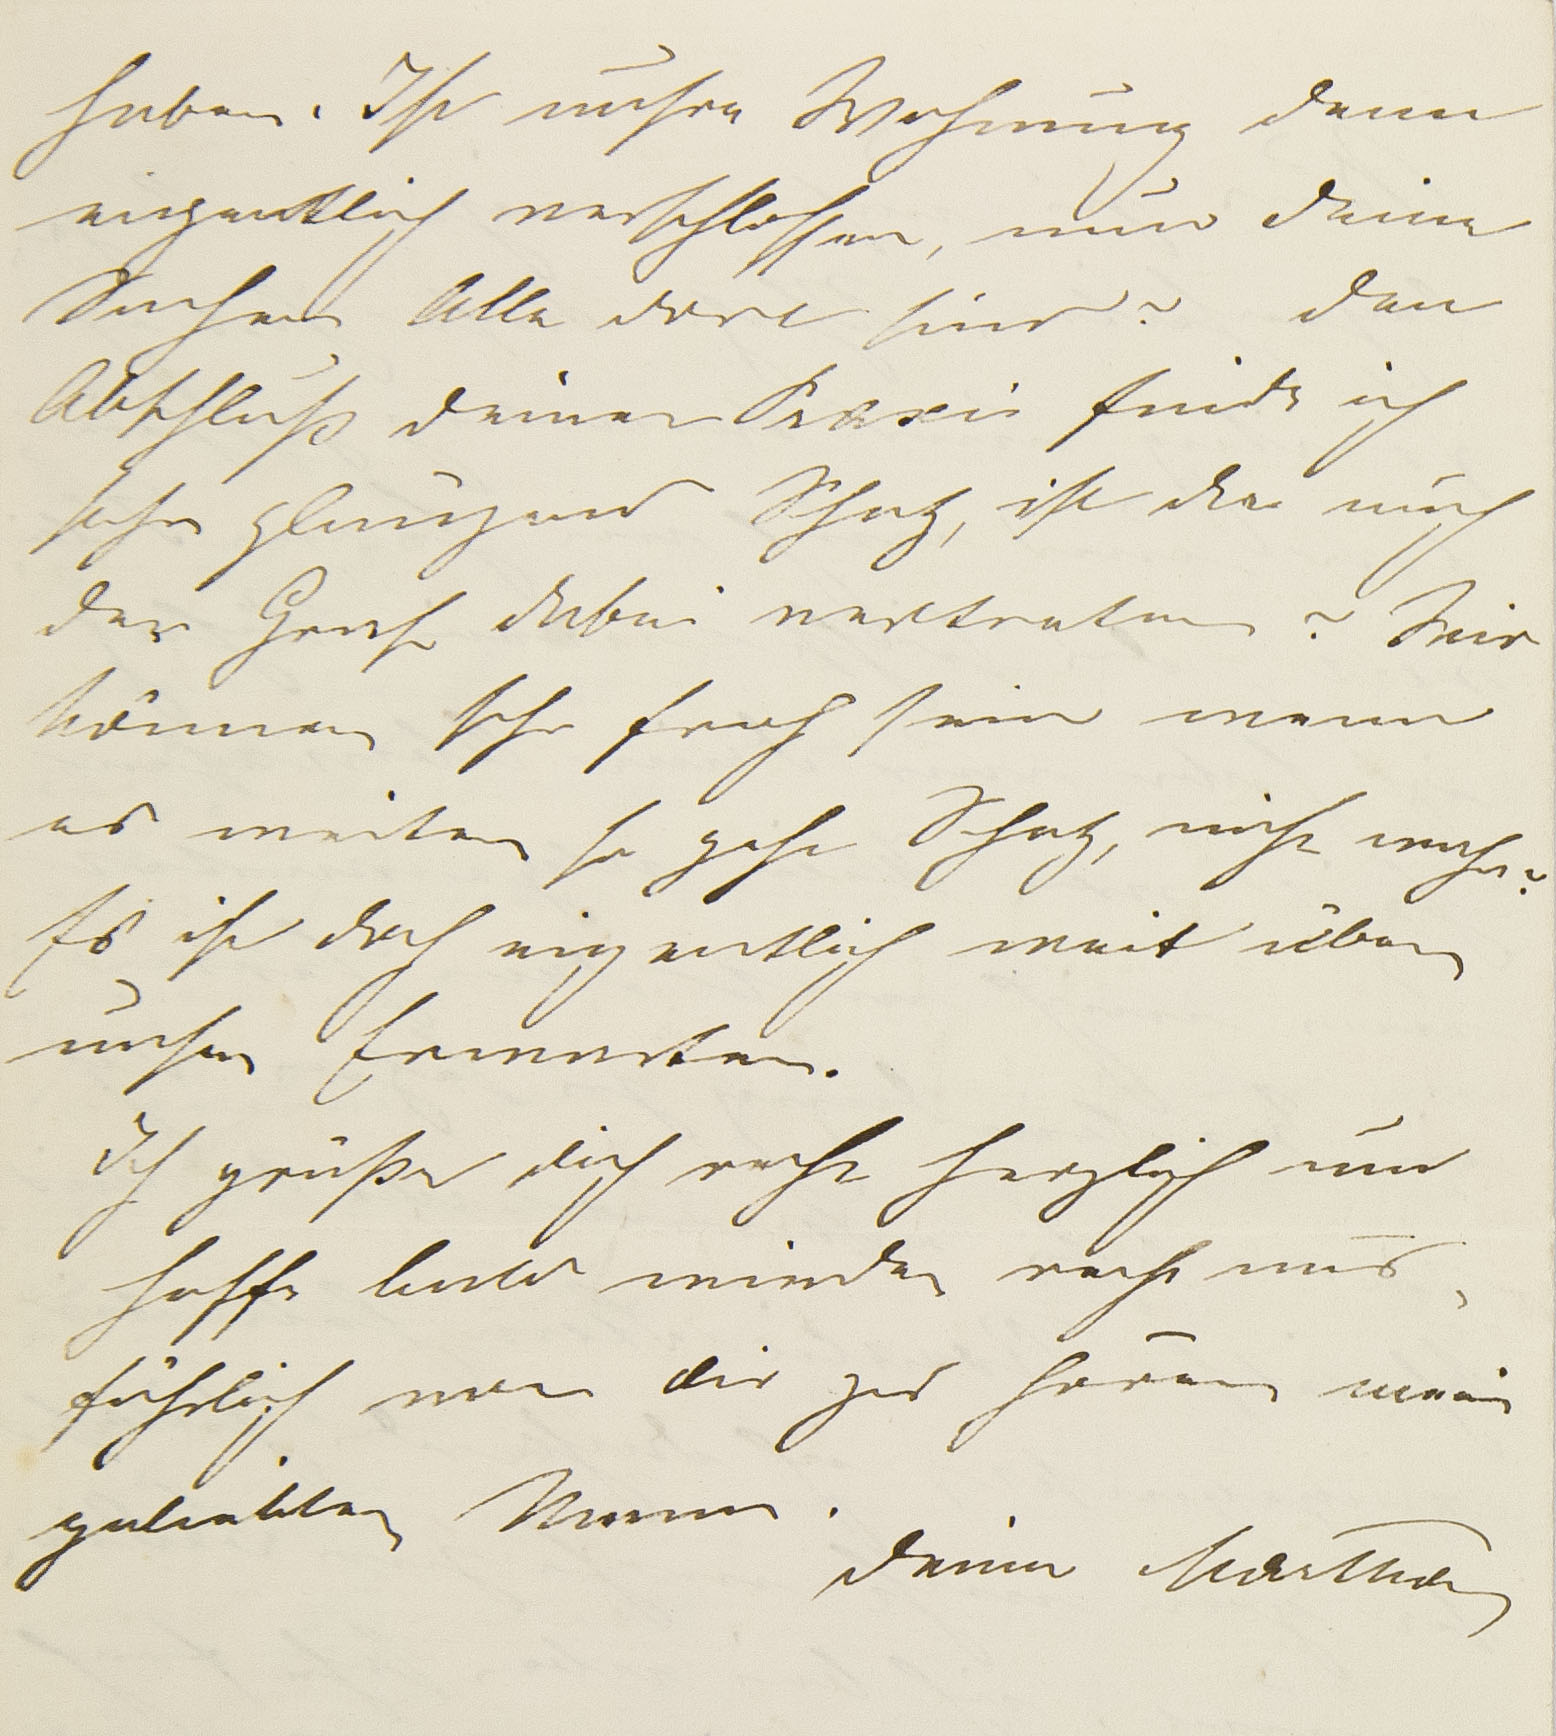 haben. Ist unsre Wohnung denn
eigentlich verschlossen, nun deine
Sachen Alle dort sind? Den
Abschluß deiner Praxis finde ich
sehr glänzend Schatz, ist da auch
der Graf dabei vertreten? Wir
können sehr froh sein wenn
es weiter so geht Schatz, nicht wahr?
Es ist doch eigentlich weit über
unser Erwarten.
Ich grüße dich recht herzlich und
hoffe bald wieder recht aus-
führlich von dir zu hören mein
geliebter Mann.
deine Martha